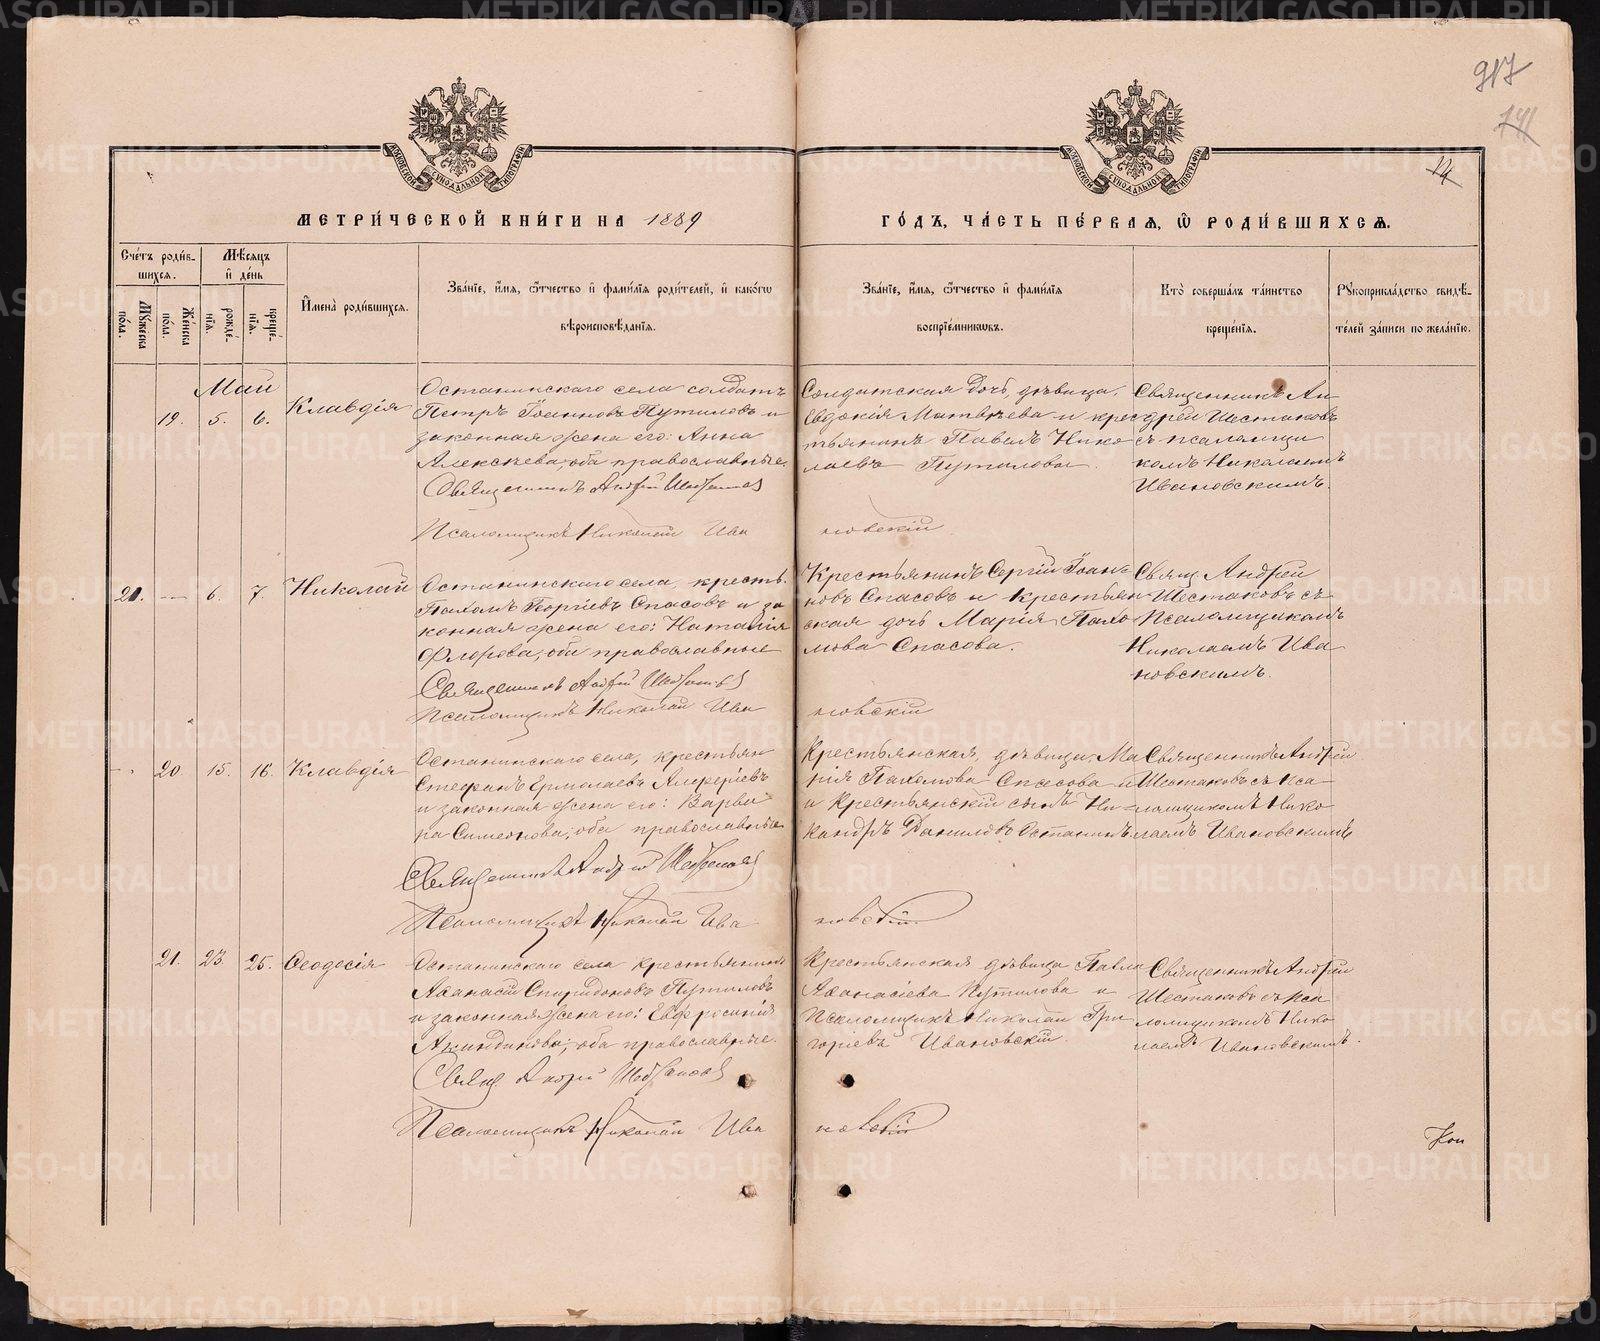 917
741
14
МОСКОВСКОЙ СУНОДАЛЬНОЙ ТИПОГРАФІИ
МОСКОВСКОЙ СУНОДАЛЬНОЙ ТИПОГРАФІИ
МЕТРИ́ЧЕСКОЙ КНИ́ГИ НА 1889
ГО́ДЪ, ЧА́СТЬ ПЕ́РВАЯ, Ѽ РОДИ́ВШИХСЯ.
Сче́тъ роди́в-
шихся.
Мѣ́сяцъ
и҆ де́нь
Мꙋ́жеска
по́ла.
Же́нска
по́ла.
рожде́-
нїя.
креще́-
нїя.
И҆мена̀ роди́вшихся.
Зва́нїе, и҆́мя, ѻ҆́тчество и҆ фами́лїя роди́телей, и҆ како́гѡ
вѣроисповѣ́данїя.
Зва́нїе, и҆́мя, ѻ҆́тчество и҆ фами́лїя
воспрїе́мникѡвъ.
Кто̀ соверша́лъ та́инство
креще́нїя.
Рꙋкоприкла́дство свидѣ́-
телей за́писи по жела́нїю.
Май
19. 5. 6. Клавдія
Останинскаго села солдатъ
Петръ Іоанновъ Путиловъ и
законная жена его: Анна
Алексѣева, оба православные.
Священникъ Андрей Шестаковъ
Псаломщикъ Николай Ивановскій
Солдатская дочь, дѣвица,
Евдокія Матвѣева и крес
тьянинъ Павелъ Нико
лаевъ Путиловы.
Священникъ Ан
дрей Шестаковъ
съ псаломщи
комъ Николаемъ
Ивановскимъ.
21. — 6. 7. Николай
Останинскаго села, кресть.
Пахомъ Георгіевъ Спасовъ и за
конная жена его: Наталія
Флорова, оба православные
Священникъ Андрей Шестаковъ
Псаломщикъ Николай Ивановскій
Крестьянинъ Сергій Іоан-
новъ Спасовъ и крестьян
ская дочь Марія Пахо
мова Спасова.
Свящ. Андрей
Шестаковъ съ
Псаломщикомъ
Николаемъ Ива
новскимъ.
20. 15. 16. Клавдія
Останинскаго села, крестьян
Стефанъ Ермолаевъ Алферіевъ
и законная жена его: Варва
ра Симеонова, оба православные
Священникъ Андрей Шестаковъ
Псаломщикъ Николай Ивановскій
Крестьянская, дѣвица, Ма
рія Пахомова Спасова и
и Крестьянскій сынъ Ни-
кандръ Даниловъ Останинъ
Священникъ Андрей
Шестаковъ съ Пса
ломщикомъ Нико
лаемъ Ивановскимъ
21. 23. 25. Ѳеодосія
Останинскаго села крестьянинъ
Аѳанасій Спиридоновъ Путиловъ
и законная жена его: Евфросинія
Акиндинова, оба православные.
Свящ. Андрей Шестаковъ
Псаломщикъ Николай Ивановскій
Крестьянская дѣвица Павла
Аѳанасіева Путилова и
Псаломщикъ Николай Гри
горіевъ Ивановскій.
Священникъ Андрей
Шестаковъ съ Пса
ломщикомъ Нико
лаемъ Ивановскимъ.
METRIKI.GASO-URAL.RU